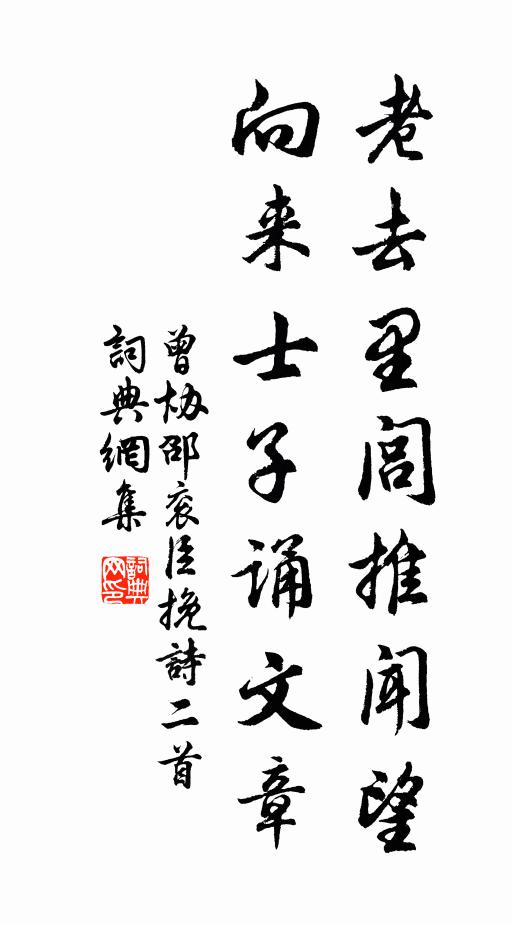 老去里闾推闻望
向来士子诵文章
曾協邵衮臣挽詩二首
詞典網集
詞典网印